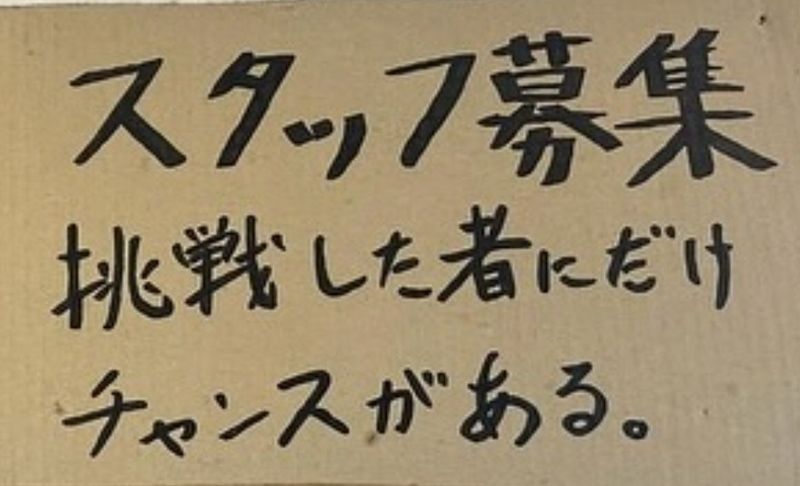 スタッフ募集
挑戦した者にだけ
チャンスがある。